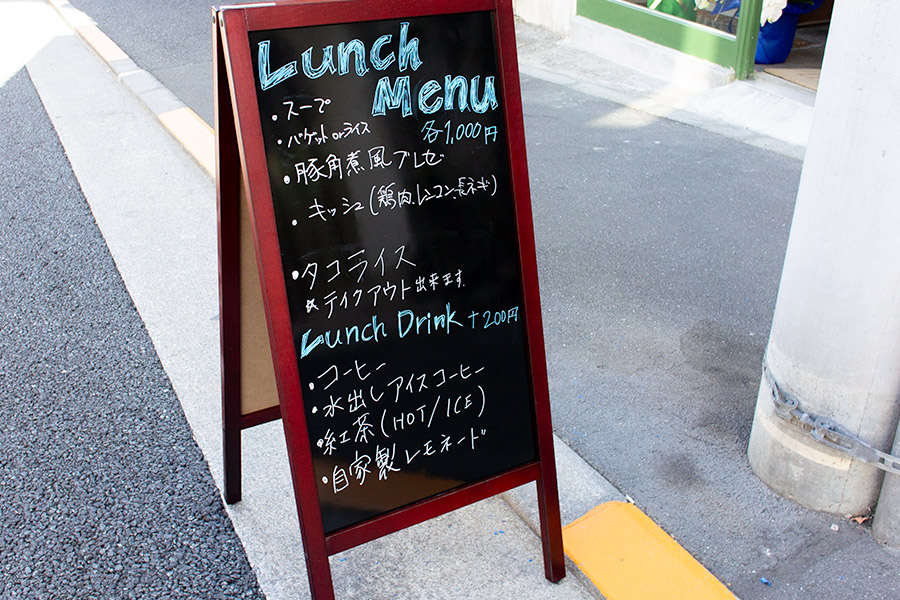 Lunch
Menu
・スープ
・バゲット or ライス
各1,000円
・豚角煮風ブレゼ
・キッシュ(鶏肉、レンコン、長ネギ)
・タコライス
☆テイクアウト出来ます。
Lunch Drink +200円
・コーヒー
・水出しアイスコーヒー
・紅茶(HOT/ICE)
・自家製レモネード